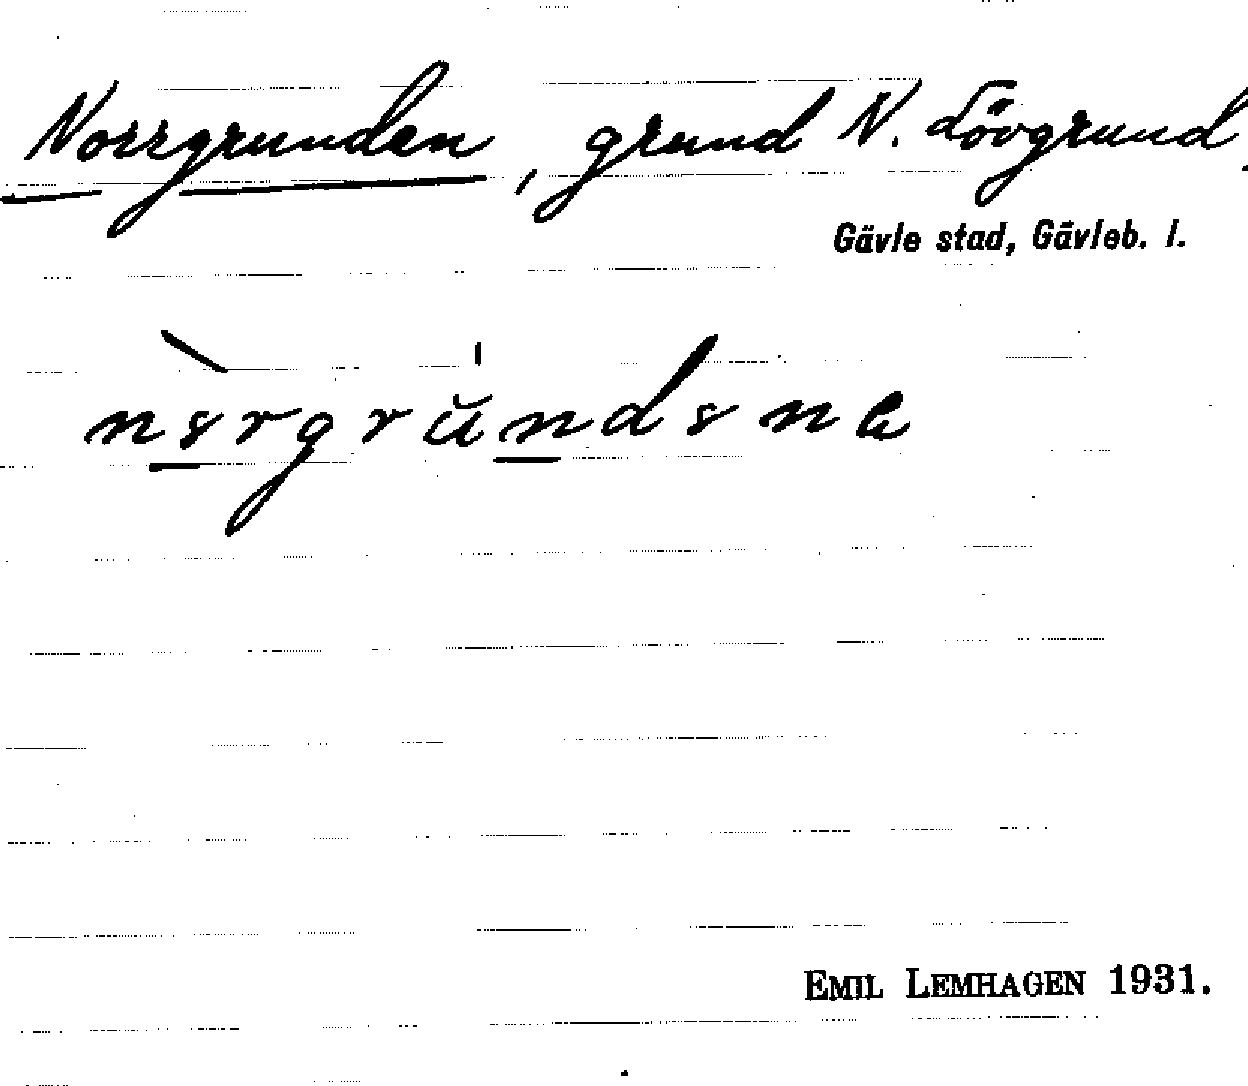 Norrgrunden, grund N. Lövgrund,
Gävle stad, Gävleb. l.
EMIL LEMHAGEN 1931.